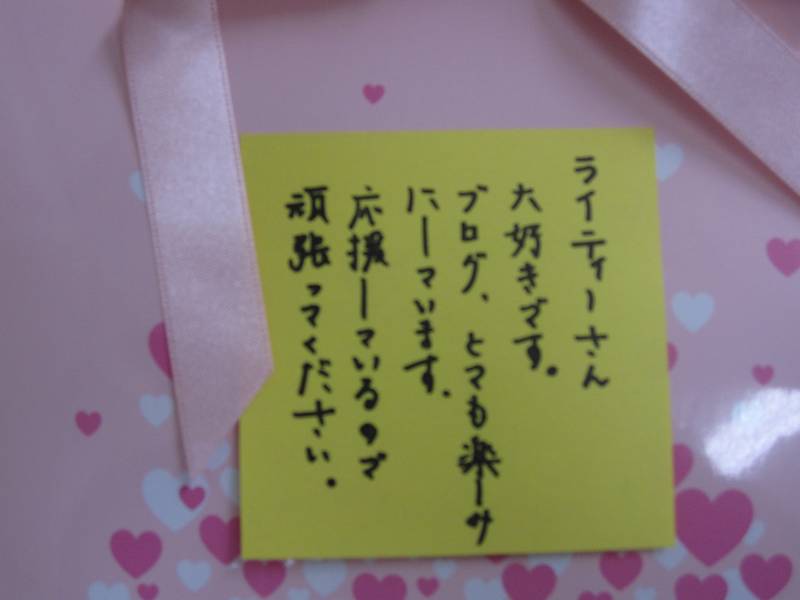 ライティーさん
大好きです。
ブログ、とても楽しみ
にしています。
応援しているので
頑張ってください。